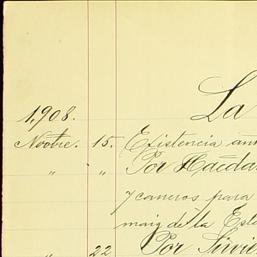 La
1,908.
Novbre. 15. Existencia an
" " Por Hacda
7 carreros para
maiz de la Est
" 22 Por Sirvie